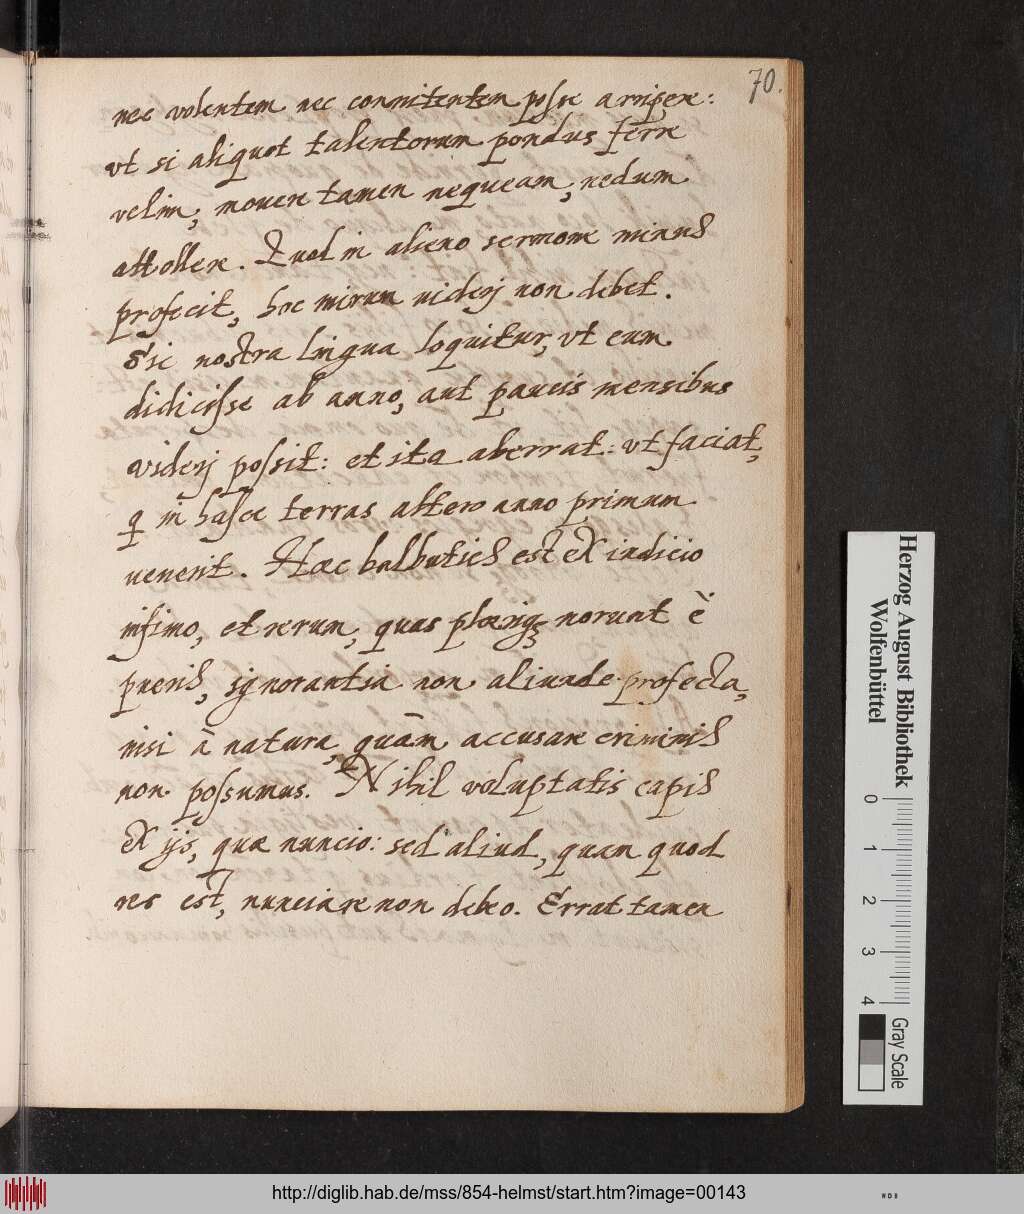 70.
nec volentem nec connitentem posse arripere:
vt si aliquot talentorum pondus ferre
velim, mouere tamen nequeam, nedum
attollere. Quod in alieno sermone minus
profecit, hoc mirum uiderj non debet.
Sic nostra lingua loquitur, vt eam
didicisse ab anno, aut paucis mensibus
viderj possit: et ita aberrat: vt faciat,
q in hasce terras altero anno primum
uenerit. Haec balbuties est ex indicio
infimo, et rerum, quas norunt è
pueris, ignorantia non aliunde profecta,
nisi à natura, quàm accusare criminis
non possumus. Nihil voluptatis capis
ex ijs, quae nuncio: sed aliud, quam quod
res est, nunciare non debeo. Errat tamen
Herzog August Bibliothek
Wolfenbüttel
0 1 2 3 4
Gray Scale
http://diglib.hab.de/mss/854-helmst/start.htm?image=00143